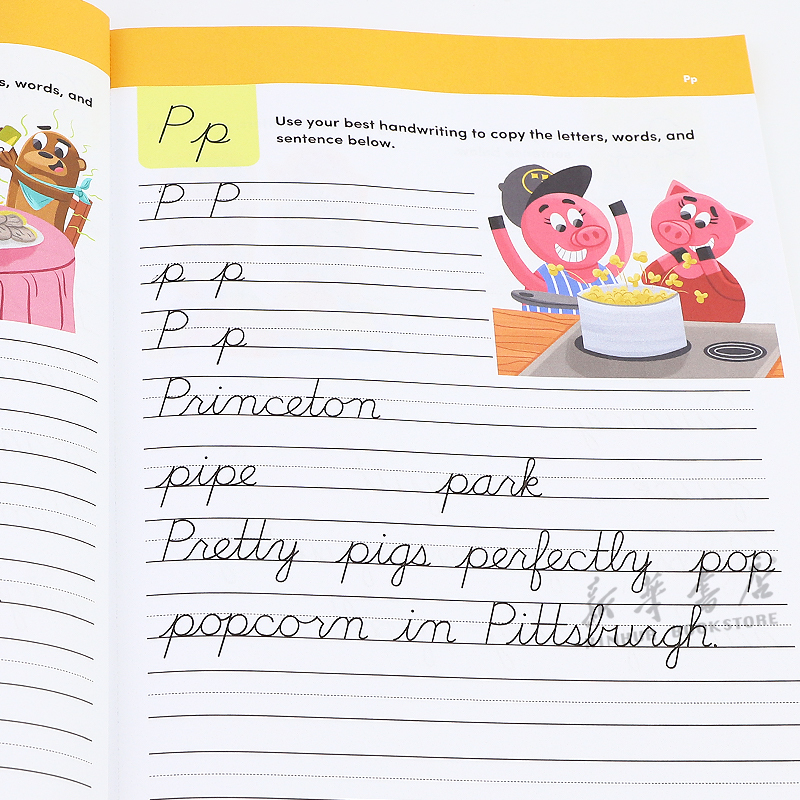 s, words, and
Pp
Pp
Use your best handwriting to copy the letters, words, and
sentence below.
P P
p p
P p
Princeton
pipe park
Pretty pigs perfectly pop
popcorn in Pittsburgh.
新华书店
XINHUA BOOKSTORE